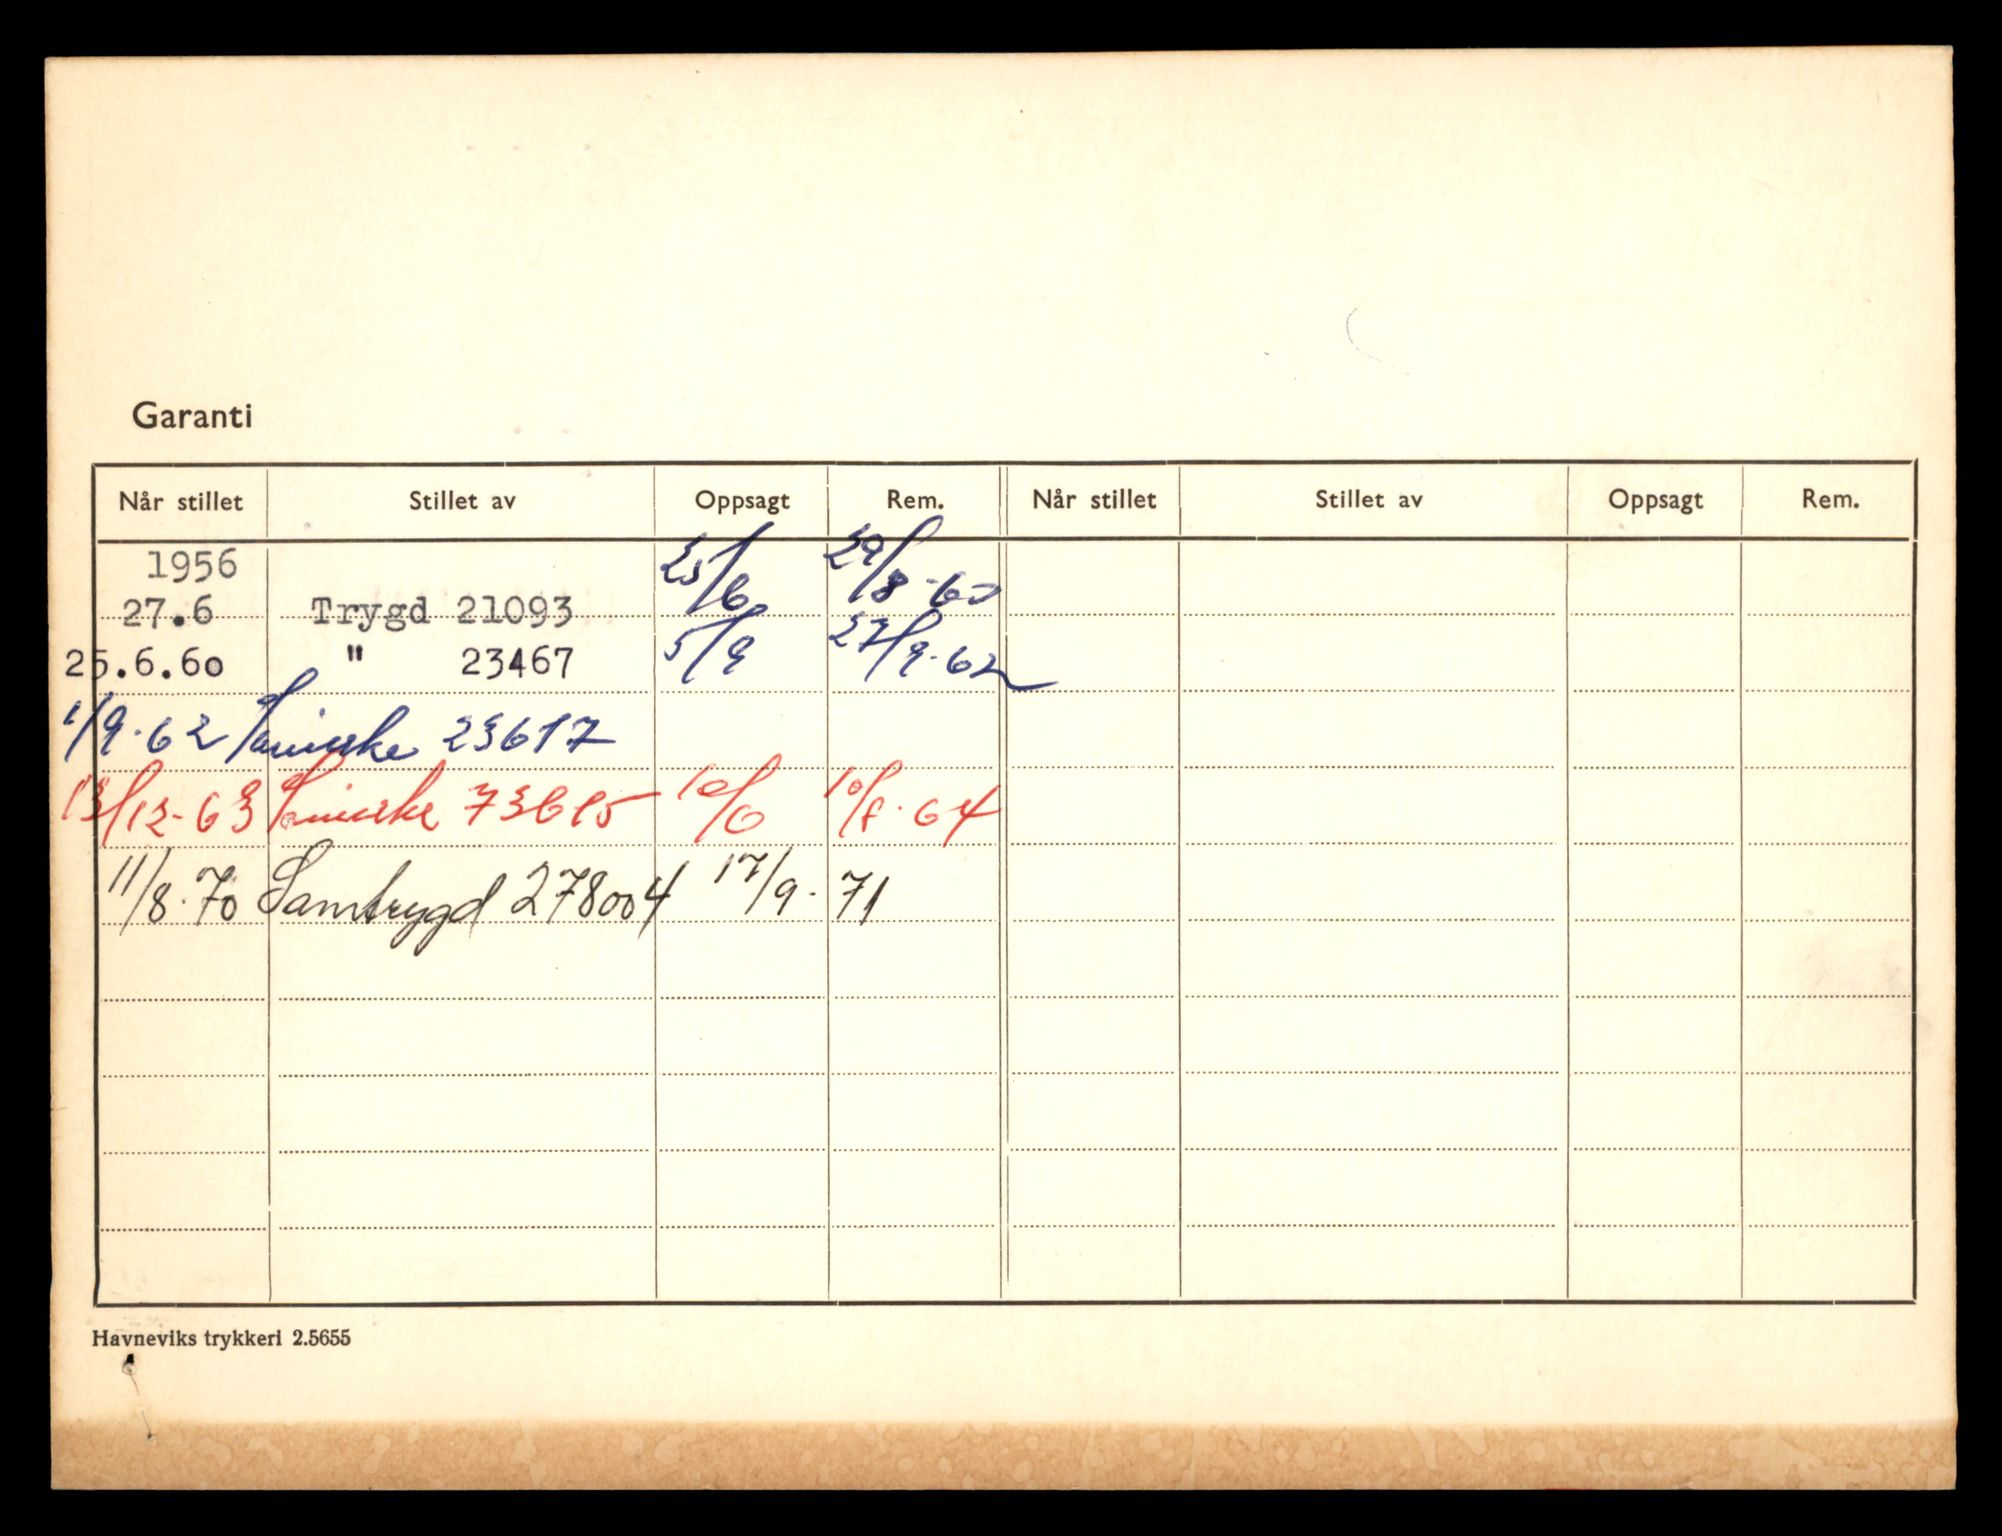 Garanti
Når stillet Stillet av Oppsagt Rem. Når stillet Stillet av Oppsagt Rem.
1956
27.6 Trygd 21093 25/6 29/8-60
25.6.60 " 23467 5/9 27/9-62
1/9-62 23617
13/12-63 73615 10/6 10/8-64
11/8-70 Samtrygd 278004 17/9-71
Havneviks trykkeri 2.5655